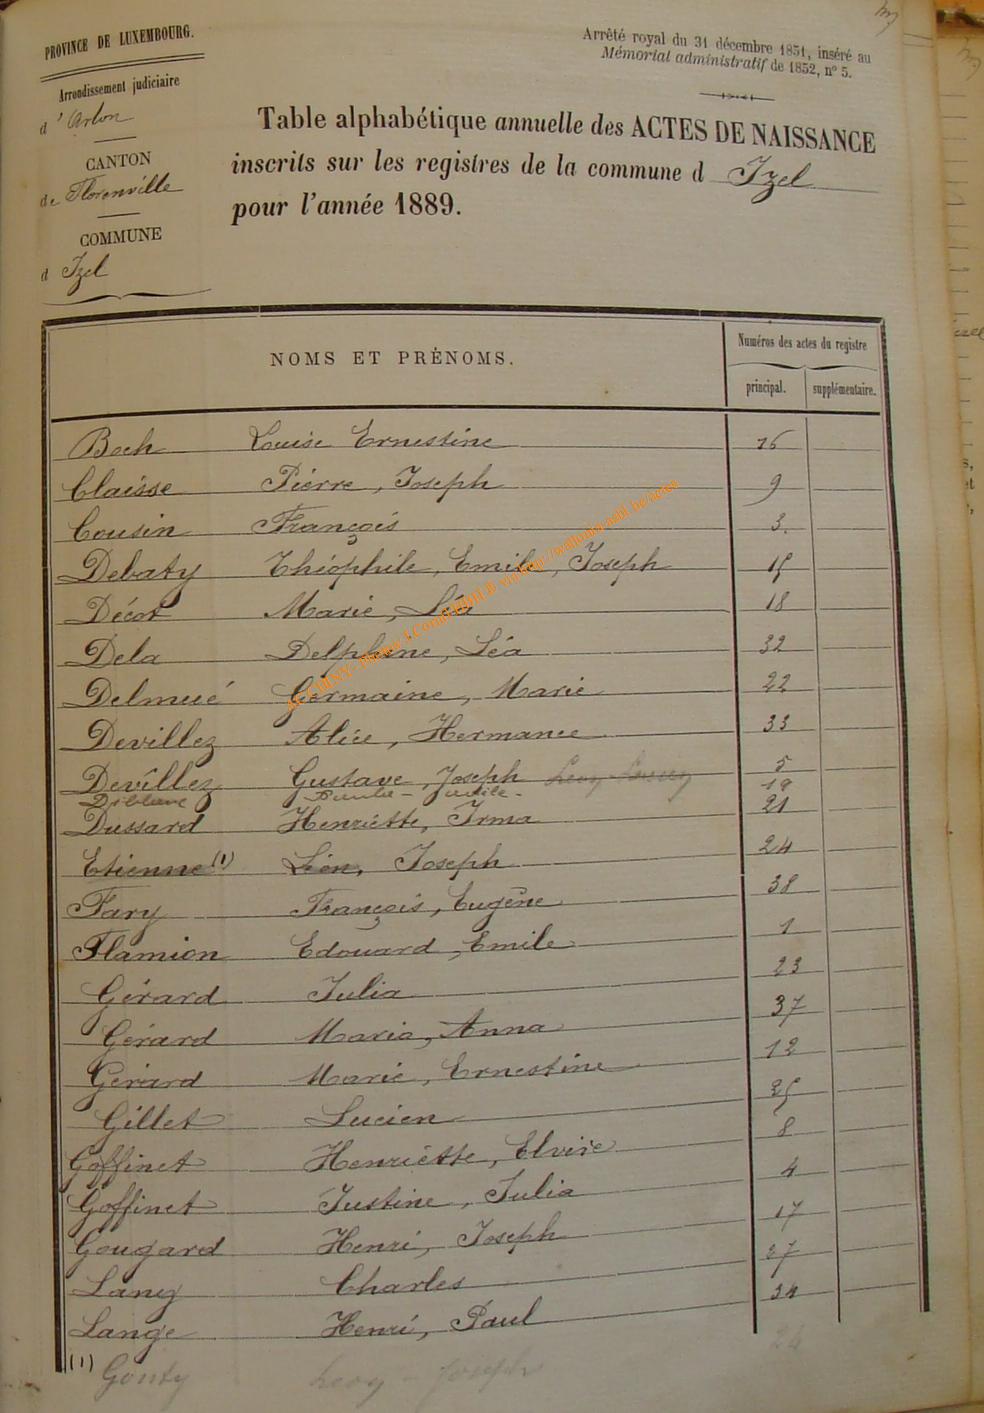 PROVINCE DE LUXEMBOURG.
Arrondissement judiciaire
d'Arlon
CANTON
de Florenville
COMMUNE
d Izel
Arrêté royal du 31 décembre 1851, inséré au
Mémorial administratif de 1852, n° 5.
Table alphabétique annuelle des ACTES DE NAISSANCE
inscrits sur les registres de la commune d Izel
pour l'année 1889.
NOMS ET PRÉNOMS.
Numéros des actes du registre
principal. supplémentaire.
Boch Louise Ernestine 16
Claisse Pierre, Joseph 9
Cousin François 3.
Debaty Théophile, Emile, Joseph 15
Décot Marie, Léa 18
Dela Delphine, Léa 32
Delmué Germaine, Marie 22
Devillez Alice, Hermance 33
Devillez Gustave, Joseph 5
19
Dussard Henriette, Irma 21
Etienne (1) Léon, Joseph 24
Fary François, Eugène 38
Flamion Edouard, Emile 1
Gérard Julia 23
Gérard Maria, Anna 37
Gérard Marie, Ernestine 12
Gillet Lucien 25
Goffinet Henriette, Elvire 8
Goffinet Justine, Julia 4
Gougard Henri, Joseph 17
Lany Charles 27
Lange Henri, Paul 34
(1) Gouty Leon - Joseph 24